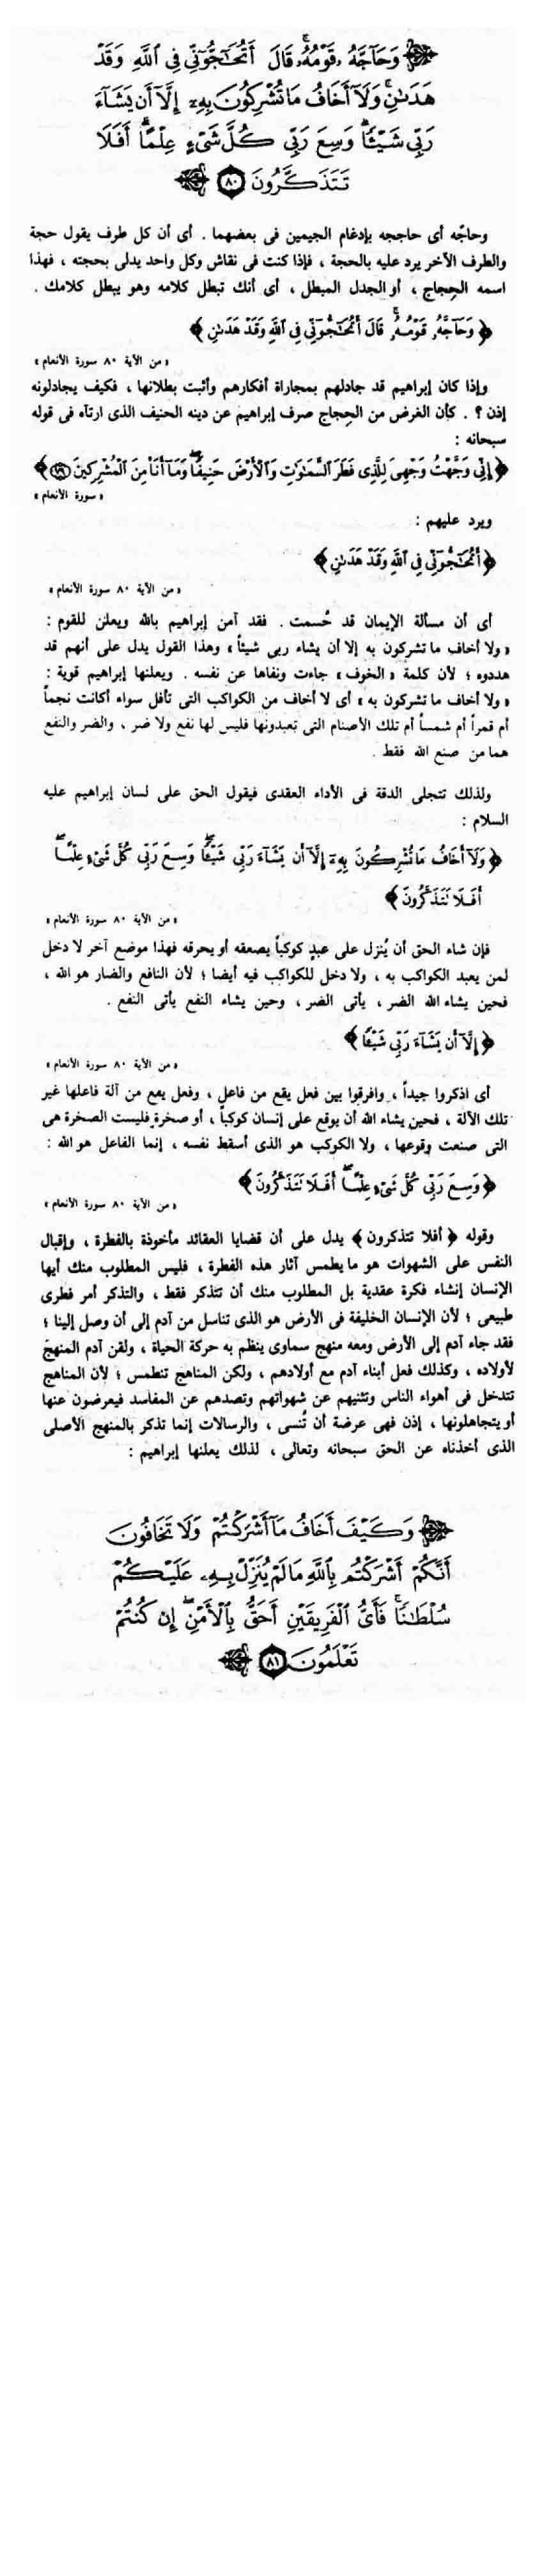 وَحَآجَّهُۥ قَوْمُهُۥۚ قَالَ أَتُحَٰٓجُّوٓنِّى فِى ٱللَّهِ وَقَدْ
هَدَىٰنِۚ وَلَآ أَخَافُ مَا تُشْرِكُونَ بِهِۦٓ إِلَّآ أَن يَشَآءَ
رَبِّى شَيْـًٔاۗ وَسِعَ رَبِّى كُلَّ شَىْءٍ عِلْمًاۗ أَفَلَا
تَتَذَكَّرُونَ ٨٠
وحاجّه أى حاججه بإدغام الجيمين فى بعضهما . أى أن كل طرف يقول حجة
والطرف الآخر يرد عليه بالحجة ، فإذا كنت فى نقاش وكل واحد يدلى بحجته ، فهذا
اسمه الحِجاج ، أو الجدل المبطل ، أى أنك تبطل كلامه وهو يبطل كلامك .
﴿ وَحَآجَّهُۥ قَوْمُهُۥۚ قَالَ أَتُحَٰٓجُّوٓنِّى فِى ٱللَّهِ وَقَدْ هَدَىٰنِ ﴾
« من الآية ٨٠ سورة الأنعام »
وإذا كان إبراهيم قد جادلهم بمجاراة أفكارهم وأثبت بطلانها ، فكيف يجادلونه
إذن ؟ . كأن الغرض من الحِجاج صرف إبراهيم عن دينه الحنيف الذى ارتآه فى قوله
سبحانه :
﴿ إِنِّى وَجَّهْتُ وَجْهِىَ لِلَّذِى فَطَرَ ٱلسَّمَٰوَٰتِ وَٱلْأَرْضَ حَنِيفًاۖ وَمَآ أَنَا۠ مِنَ ٱلْمُشْرِكِينَ ٧٩ ﴾
« سورة الأنعام »
ويرد عليهم :
﴿ أَتُحَٰٓجُّوٓنِّى فِى ٱللَّهِ وَقَدْ هَدَىٰنِ ﴾
« من الآية ٨٠ سورة الأنعام »
أى أن مسألة الإيمان قد حُسمت . فقد آمن إبراهيم بالله ويعلن للقوم :
« ولا أخاف ما تشركون به إلا أن يشاء ربى شيئاً » وهذا القول يدل على أنهم قد
هددوه ؛ لأن كلمة « الخوف » جاءت ونفاها عن نفسه . ويعلنها إبراهيم قوية :
« ولا أخاف ما تشركون به » أى لا أخاف من الكواكب التى تأفل سواء أكانت نجماً
أم قمراً أم شمساً أم تلك الأصنام التى تعبدونها فليس لها نفع ولا ضر ، والضر والنفع
هما من صنع الله فقط .
ولذلك تتجلى الدقة فى الأداء العقدى فيقول الحق على لسان إبراهيم عليه
السلام :
﴿ وَلَآ أَخَافُ مَا تُشْرِكُونَ بِهِۦٓ إِلَّآ أَن يَشَآءَ رَبِّى شَيْـًٔاۗ وَسِعَ رَبِّى كُلَّ شَىْءٍ عِلْمًاۗ
أَفَلَا تَتَذَكَّرُونَ ﴾
« من الآية ٨٠ سورة الأنعام »
فإن شاء الحق أن يُنزل على عبدٍ كوكباً يصعقه أو يحرقه فهذا موضع آخر لا دخل
لمن يعبد الكواكب به ، ولا دخل للكواكب فيه أيضا ؛ لأن النافع والضار هو الله ،
فحين يشاء الله الضر ، يأتى الضر ، وحين يشاء النفع يأتى النفع .
﴿ إِلَّآ أَن يَشَآءَ رَبِّى شَيْـًٔا ﴾
« من الآية ٨٠ سورة الأنعام »
أى اذكروا جيداً ، وافرقوا بين فعل يقع من فاعل ، وفعل يقع من آلة فاعلها غير
تلك الآلة ، فحين يشاء الله أن يوقع على إنسان كوكباً ، أو صخرة فليست الصخرة هى
التى صنعت وقوعها ، ولا الكوكب هو الذى أسقط نفسه ، إنما الفاعل هو الله :
﴿ وَسِعَ رَبِّى كُلَّ شَىْءٍ عِلْمًاۗ أَفَلَا تَتَذَكَّرُونَ ﴾
« من الآية ٨٠ سورة الأنعام »
وقوله ﴿ أفلا تتذكرون ﴾ يدل على أن قضايا العقائد مأخوذة بالفطرة ، وإقبال
النفس على الشهوات هو ما يطمس آثار هذه الفطرة ، فليس المطلوب منك أيها
الإنسان إنشاء فكرة عقدية بل المطلوب منك أن تتذكر فقط ، والتذكر أمر فطرى
طبيعى ؛ لأن الإنسان الخليفة فى الأرض هو الذى تناسل من آدم إلى أن وصل إلينا ؛
فقد جاء آدم إلى الأرض ومعه منهج سماوى ينظم به حركة الحياة ، ولقن آدم المنهجَ
لأولاده ، وكذلك فعل أبناء آدم مع أولادهم ، ولكن المناهج تنطمس ؛ لأن المناهج
تتدخل فى أهواء الناس وتثنيهم عن شهواتهم وتصدهم عن المفاسد فيعرضون عنها
أو يتجاهلونها ، إذن فهى عرضة أن تُنسى ، والرسالات إنما تذكر بالمنهج الأصلى
الذى أخذناه عن الحق سبحانه وتعالى ، لذلك يعلنها إبراهيم :
وَكَيْفَ أَخَافُ مَآ أَشْرَكْتُمْ وَلَا تَخَافُونَ
أَنَّكُمْ أَشْرَكْتُم بِٱللَّهِ مَا لَمْ يُنَزِّلْ بِهِۦ عَلَيْكُمْ
سُلْطَٰنًاۚ فَأَىُّ ٱلْفَرِيقَيْنِ أَحَقُّ بِٱلْأَمْنِۖ إِن كُنتُمْ
تَعْلَمُونَ ٨١